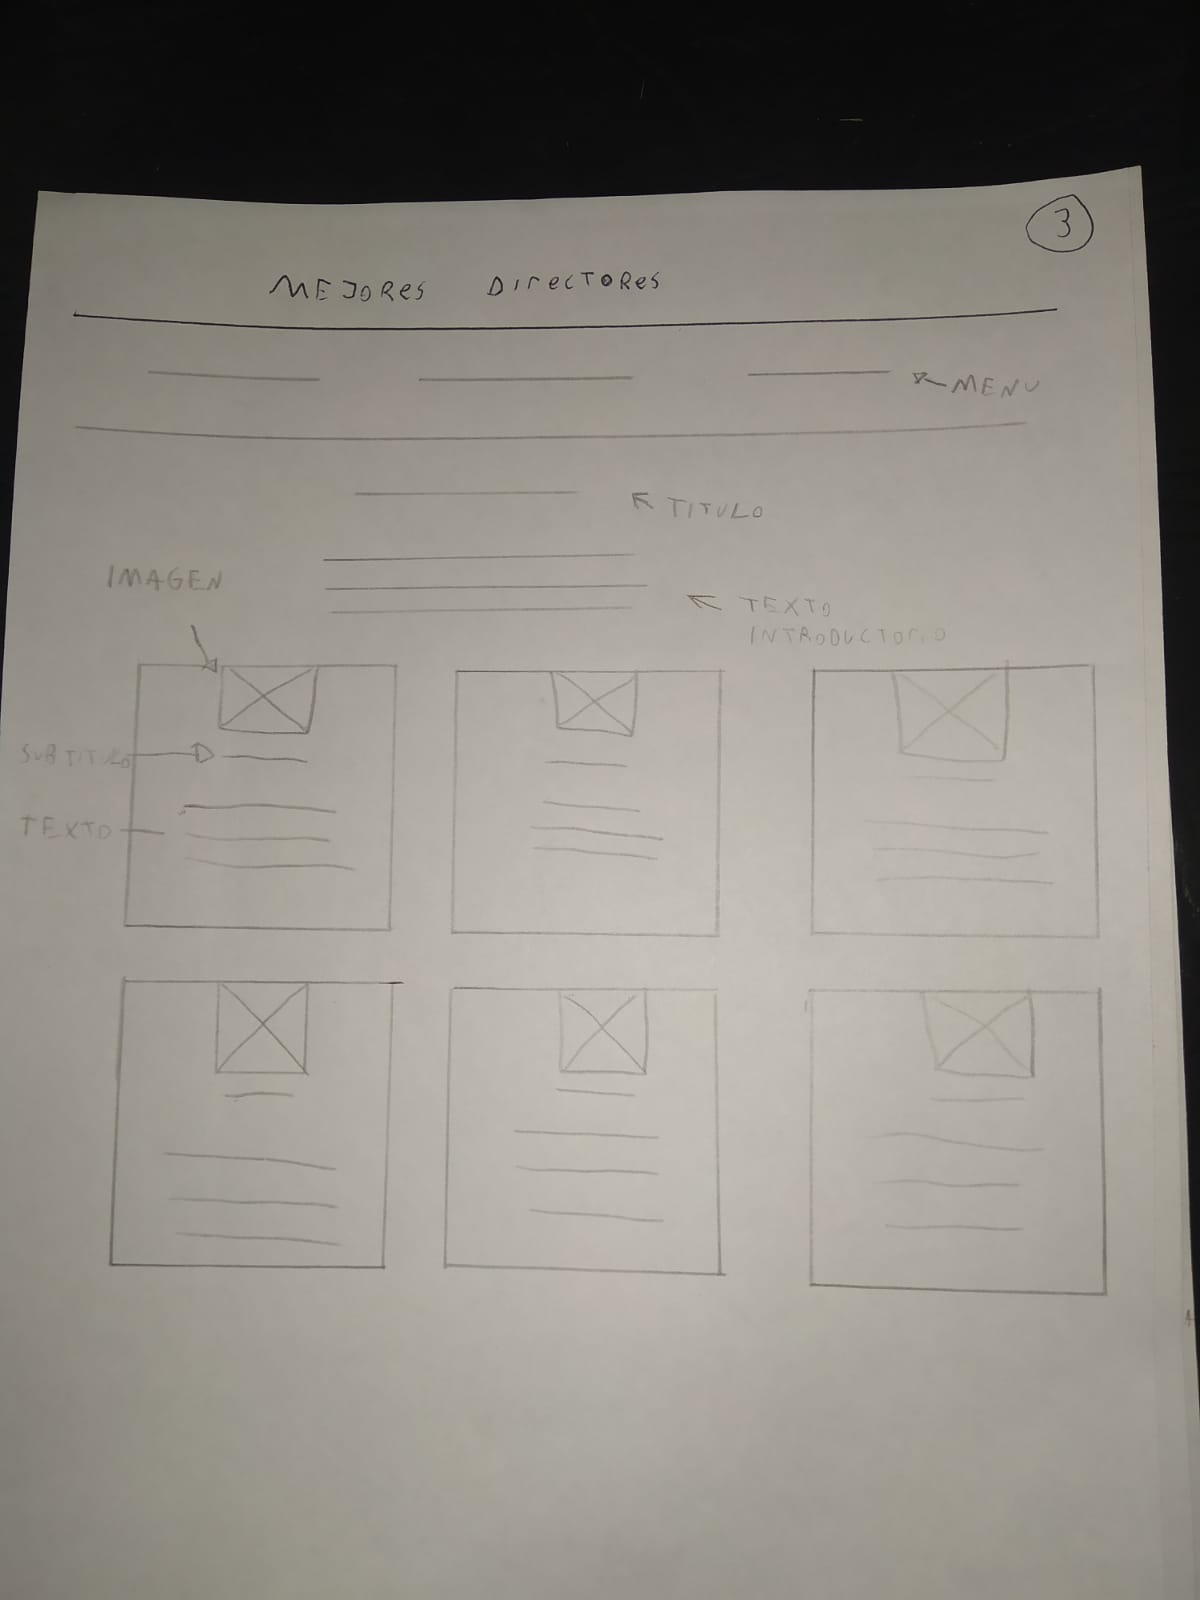 3
MEJORES DIrecTORes
MENU
TITULO
IMAGEN
TEXTO
INTRODUCTORIO
SUBTITULO
TEXTO